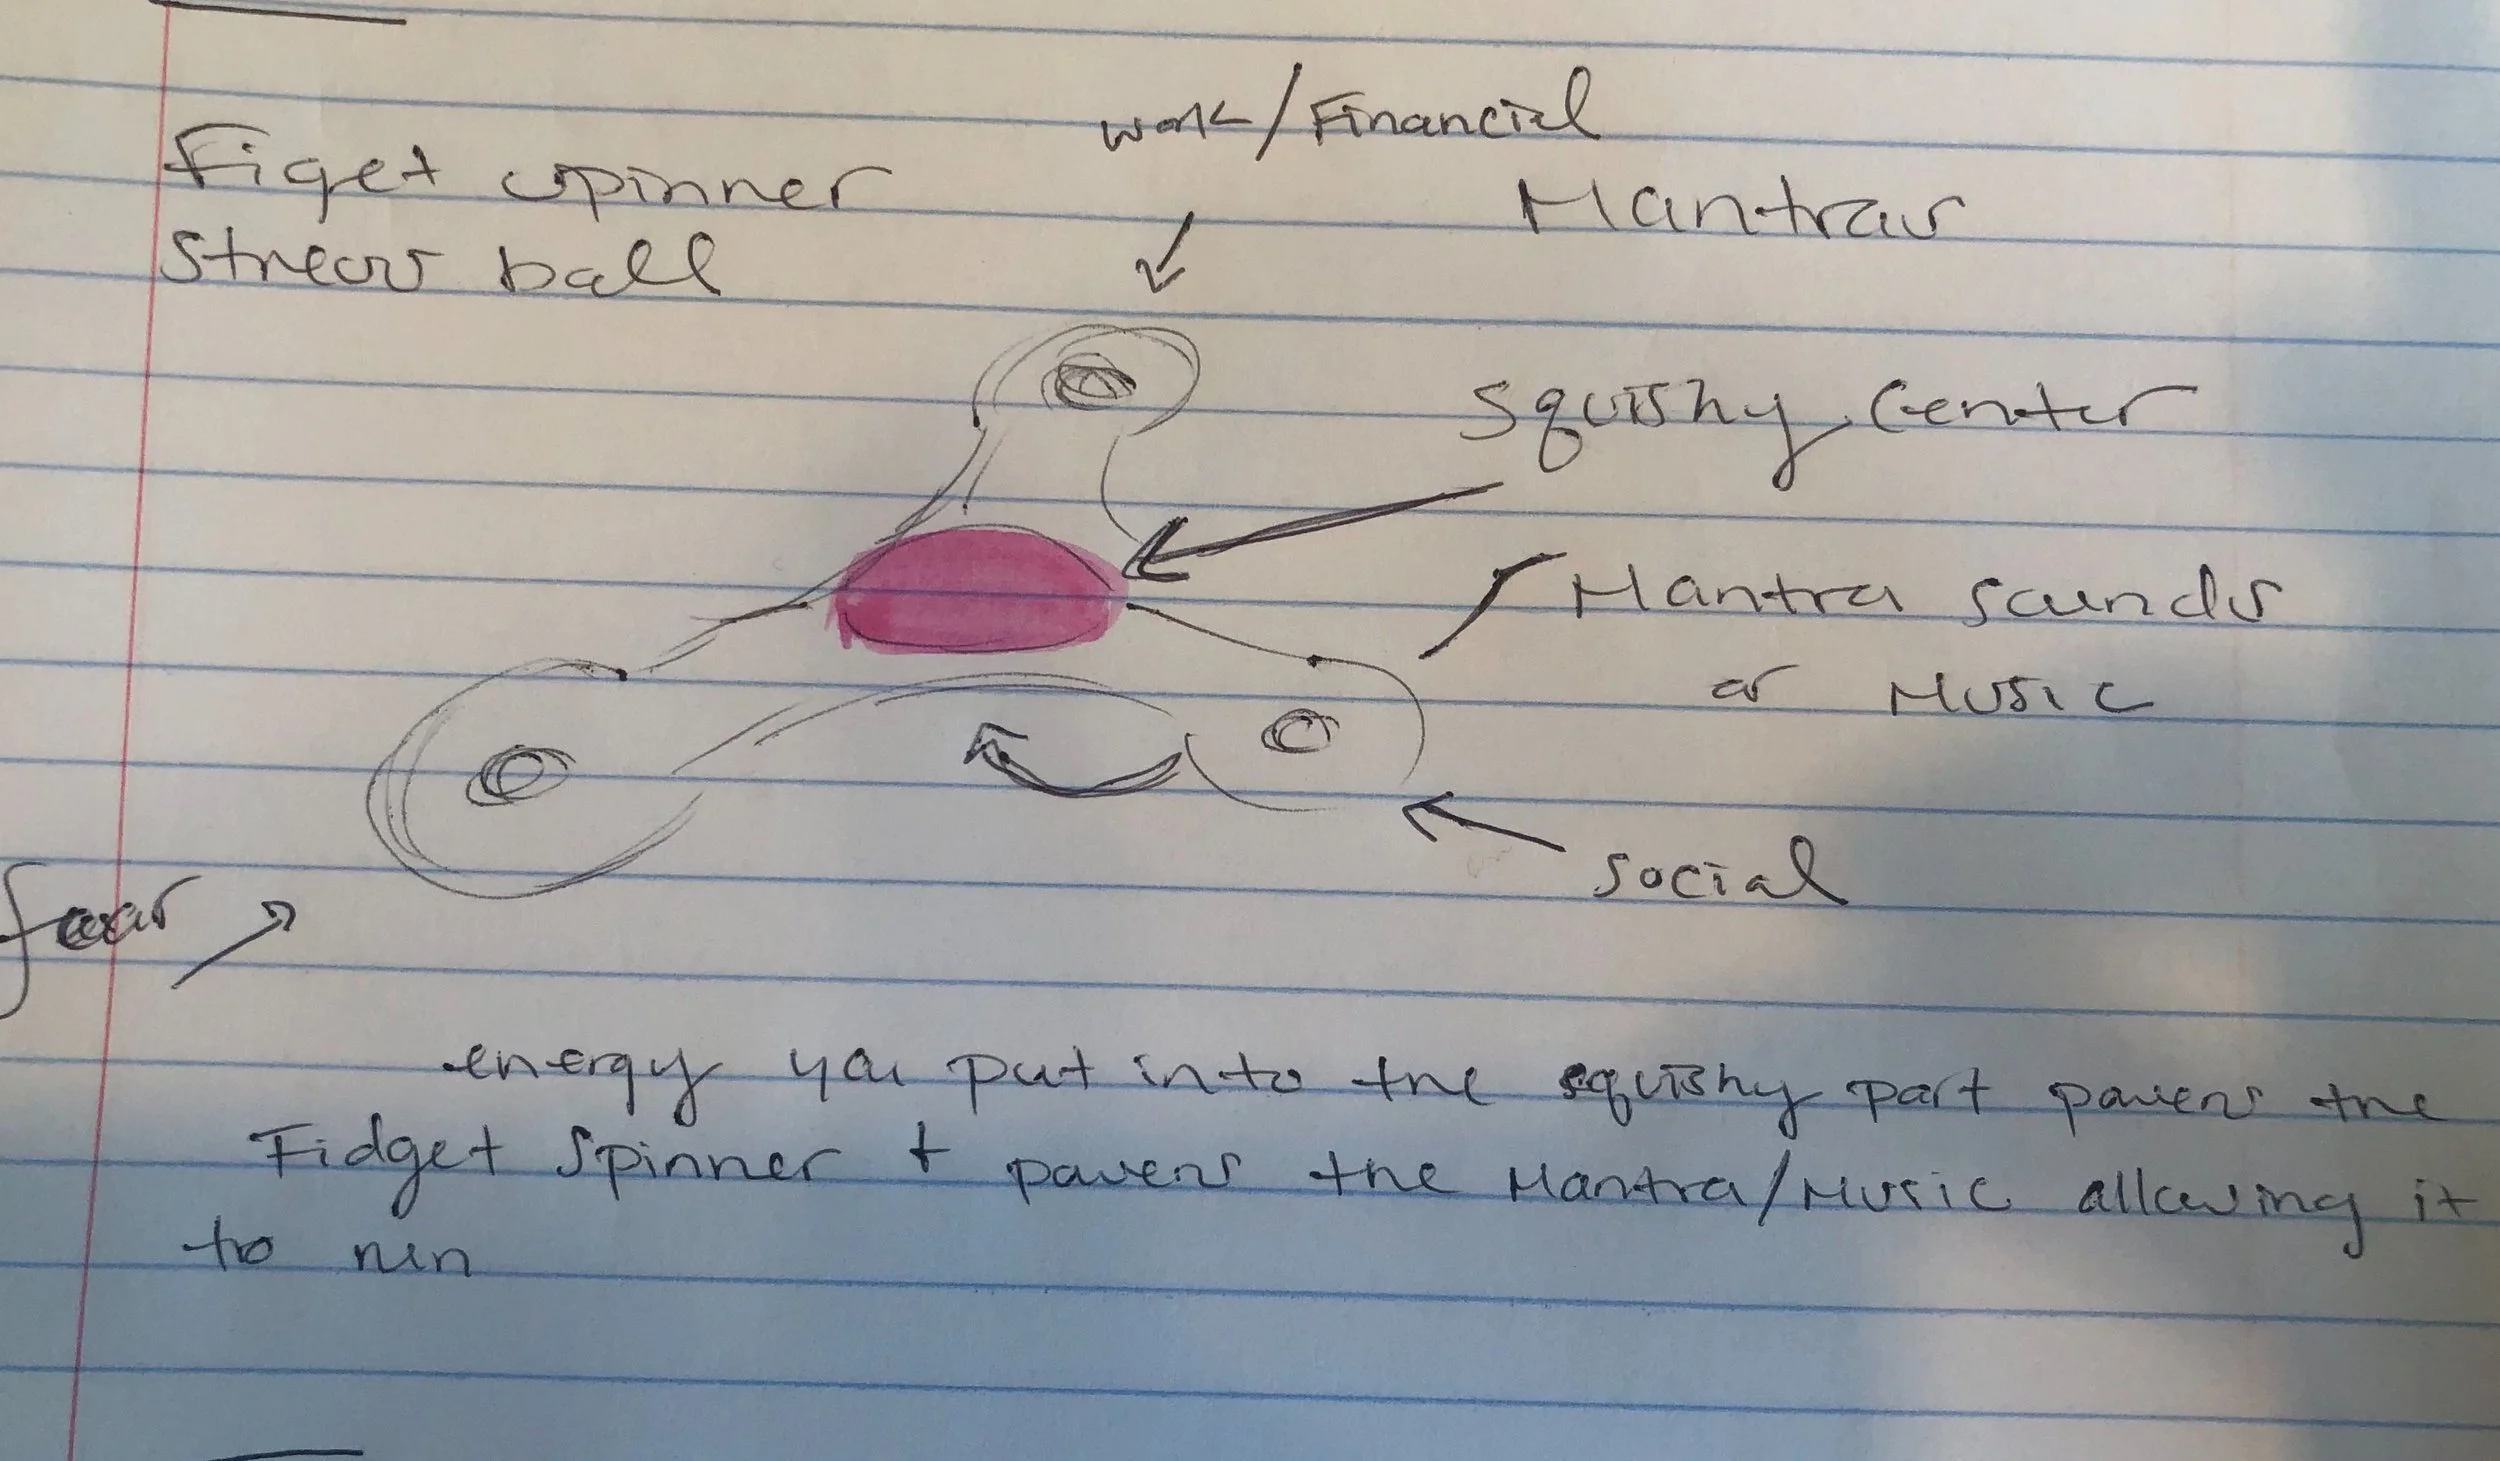 Figet spinner
Stress ball
work/Financial
Mantras
Squishy Center
Mantra sounds
or Music
social
fear
energy you put into the squishy part powers the
Fidget Spinner + powers the Mantra/Music allowing it
to run